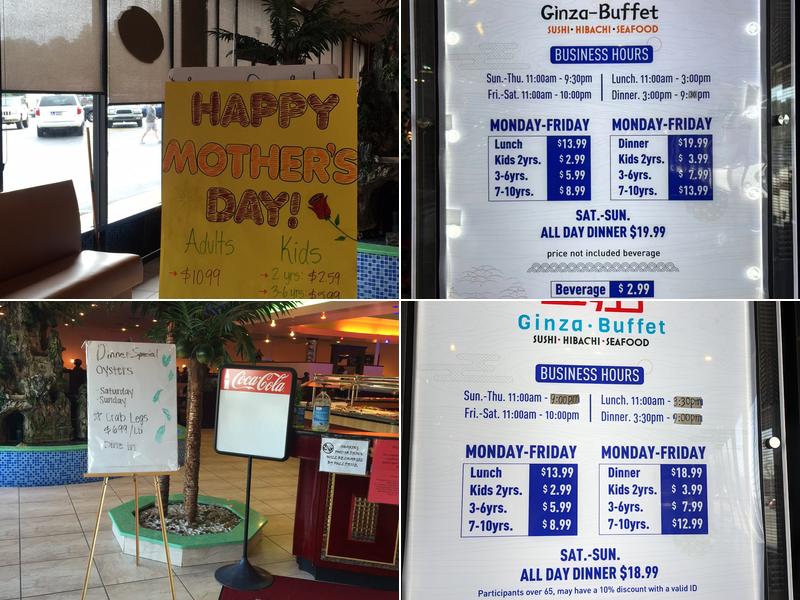 HAPPY
MOTHER'S
DAY!
Adults
Kids
→ $10.99
→ 2 yrs: $2.59
→ 3-6 yrs: $5.99
Ginza-Buffet
SUSHI·HIBACHI·SEAFOOD
BUSINESS HOURS
Sun.-Thu. 11:00am - 9:30pm
Lunch. 11:00am - 3:00pm
Fri.-Sat. 11:00am - 10:00pm
Dinner. 3:00pm - 9:30pm
MONDAY-FRIDAY
Lunch $13.99
Kids 2yrs. $2.99
3-6yrs. $5.99
7-10yrs. $8.99
MONDAY-FRIDAY
Dinner $19.99
Kids 2yrs. $3.99
3-6yrs. $7.99
7-10yrs. $13.99
SAT.-SUN.
ALL DAY DINNER $19.99
price not included beverage
Beverage $2.99
Dinner Special
Oysters
-Saturday
-Sunday
☆ Crab Legs
$6.99/Lb
Dine in
Coca-Cola
Ginza·Buffet
SUSHI·HIBACHI·SEAFOOD
BUSINESS HOURS
Sun.-Thu. 11:00am - 9:00pm
Lunch. 11:00am - 3:30pm
Fri.-Sat. 11:00am - 10:00pm
Dinner. 3:30pm - 9:00pm
MONDAY-FRIDAY
Lunch $13.99
Kids 2yrs. $2.99
3-6yrs. $5.99
7-10yrs. $8.99
MONDAY-FRIDAY
Dinner $18.99
Kids 2yrs. $3.99
3-6yrs. $7.99
7-10yrs. $12.99
SAT.-SUN.
ALL DAY DINNER $18.99
Participants over 65, may have a 10% discount with a valid ID